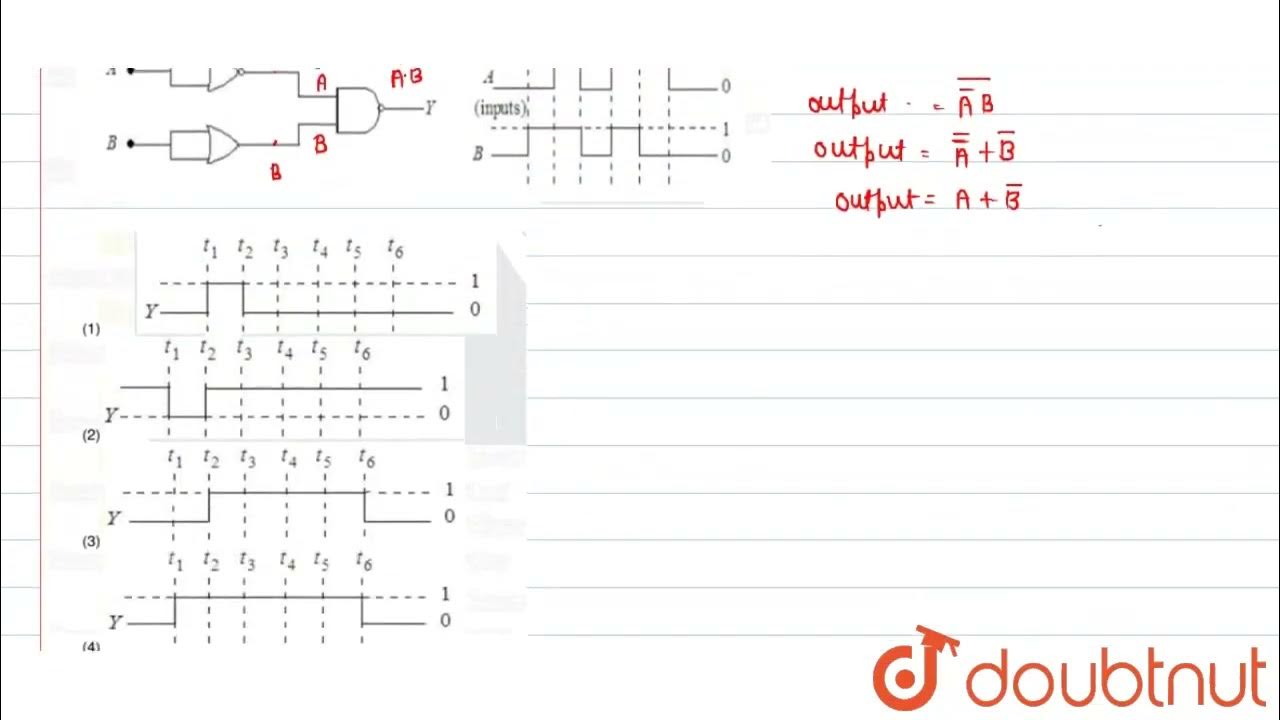 A A A·B A 0
Y (inputs) output · = \overline{\overline{A} B}
B B B 1 0
B output = \overline{\overline{A}} + \overline{B}
output = A + \overline{B}
t₁ t₂ t₃ t₄ t₅ t₆
1
Y 0
(1)
t₁ t₂ t₃ t₄ t₅ t₆
1
Y 0
(2)
t₁ t₂ t₃ t₄ t₅ t₆
1
Y 0
(3)
t₁ t₂ t₃ t₄ t₅ t₆
1
Y 0
(4)
doubtnut